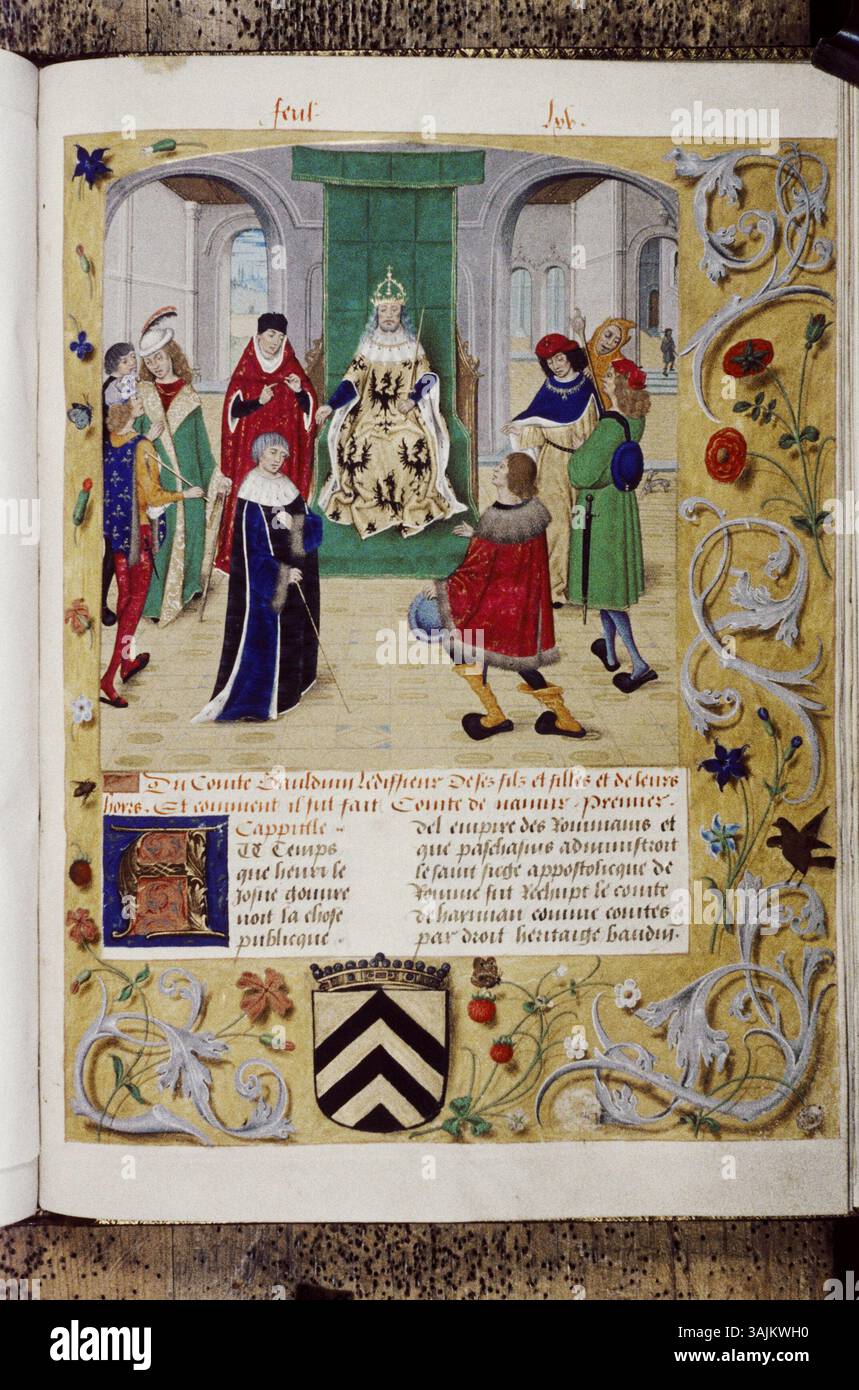 feul.
lxv.
Du Comte Baulduin l'edifficur de ses filz et filles et de leurs
hoirs. Et comment il fut fait Comte de namur. Premier.
Cappitle..
Au Temps
que henri le
Josne gouvre
noit la chose
publicque.
del empire des Rommains et
que paschasius administroit
le saint siege appostolicque de
Romme fut Rechupt le comte
de haynnau comme comtes
par droit heritaige bauduin.
alamy
Image ID: 3AJKWH0
www.alamy.com